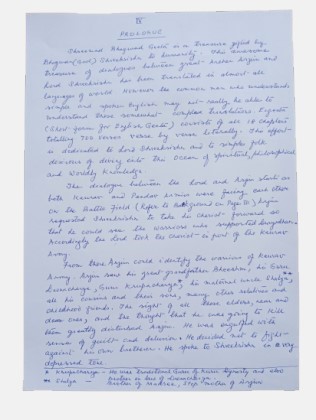 IV
PROLOGUE
Shreemad Bhagwad Geeta is a Treasure gifted by
Bhagwan (God) Shreekrishna to humanity. This awesome
treasure of dialogues between great archer Arjun and
Lord Shreekrishna has been translated in almost all
languages of world. However the common man who understands
simple and spoken English may not really be able to
understand these somewhat complex translations. Engeeta
(Short form for English Geeta) consists of all 18 chapters
totalling 700 verses verse by verse literally. This effort
is dedicated to Lord Shreekrishna and to simple folk
desirous of diving into the Ocean of Spiritual, philosophical
and Worldly Knowledge.
The dialogue between the Lord and Arjun starts as
both Kaurav and Pandav Armies were facing each other
on the Battle Field (Refer to Background on Page to). Arjun
requested Shreekrishna to take his chariot forward so
that he could see the warriors who supported
Accordingly the Lord took the chariot in front of the Kaurav
Army.
From there Arjun could identify the warriors of Kaurav
Army. Arjun saw his great grandfather Bheeshma, his Guru
Dronacharya, Guru Krupacharya*, his maternal uncle Shalya**,
all his cousins and their sons, many other relatives and
childhood friends. The sight of all these elders, near and
dear ones, and the thought that he was going to kill
them greatly disturbed Arjun. He was engulfed with
sense of guilt and delusion. He decided not to fight
against his own brethren. He spoke to Shreekrishna in a very
depressed tone.
* Krupacharya - He was Traditional Guru of Kuru Dynasty and also
brother in law of Dronacharya.
** Shalya - Brother of Madree, Step mother of Arjun